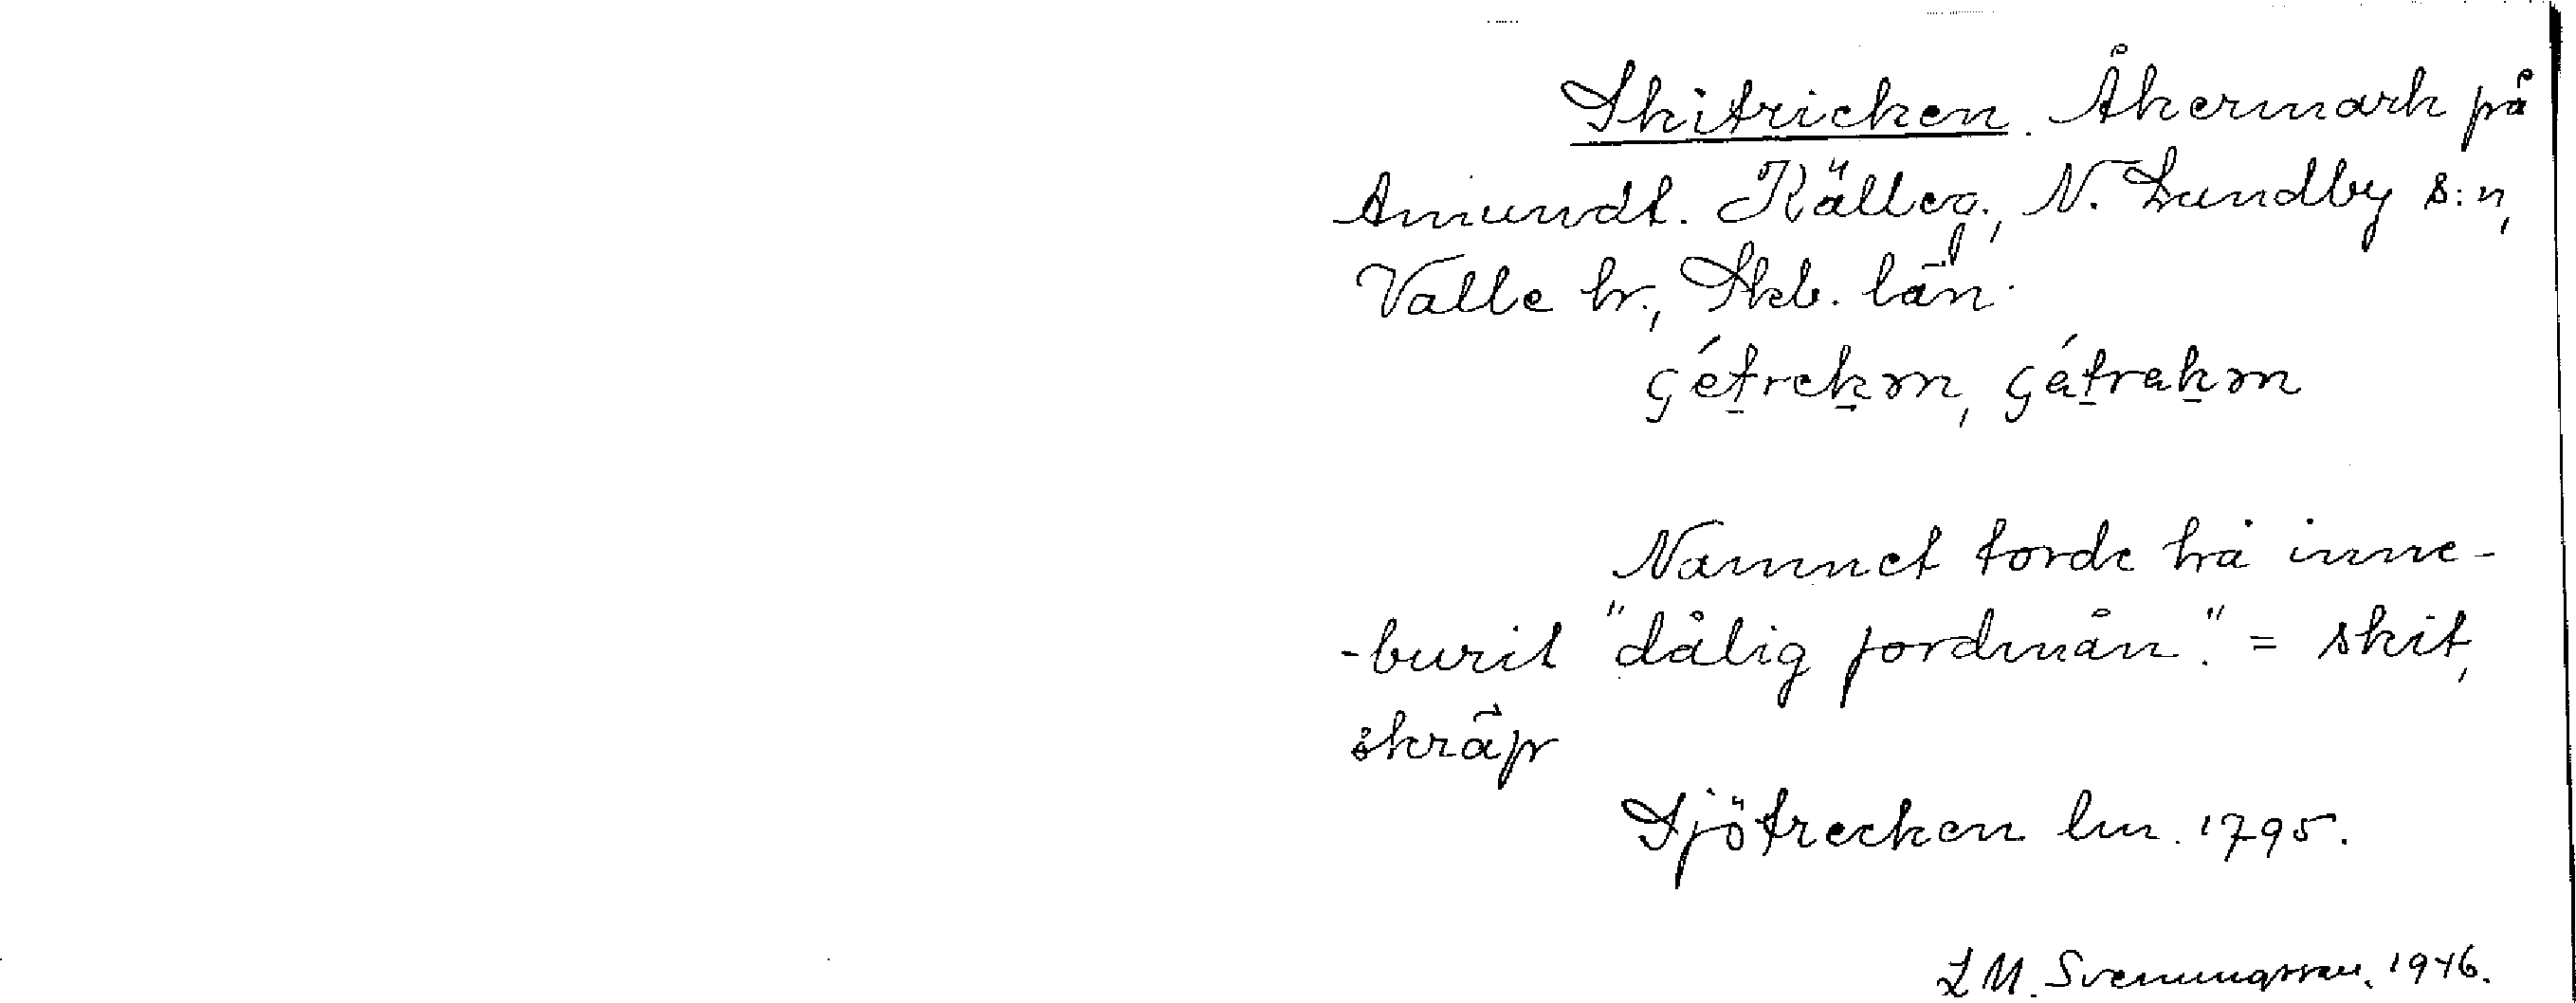 Skitricken. Åkermark på
Amundt. Källeg., N. Lundby s:n,
Valle hr., Skb. län.
çétrekɷn, çétrakɷn
Namnet torde ha inne-
-burit "dålig jordmån." = skit,
skräp
Sjötrecken lm. 1795.
L M. Svenungsson. 1946.